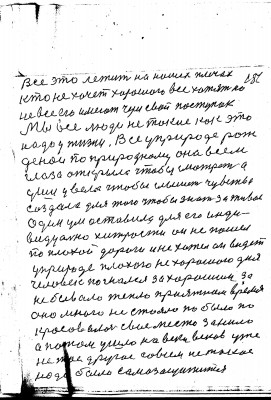 Все это лежит на наших плечах
кто не хочет хорошого все хотят но
не всего имеют чуи свой поступок
Мы все люди не такие как это
надо у жизни. Все у природе рож
деной по природному она всем
глаза открыла чтобы смотрел а
уши увела чтобы слышел чувство
создала для того чтобы знать за живое
Один ум оставила для его инди-
видуално хитрости он не пошел
по плохой дороги и не хотел он видеть
у природе плохого не хорошого дня
человек погнался за хорошим за
небывало тепло приятнам время
оно много не стояло по было по
красовалося свое место заняло
а потом ушло на веки веков уже
не то а другое совсем не такое
надо было самозащитится